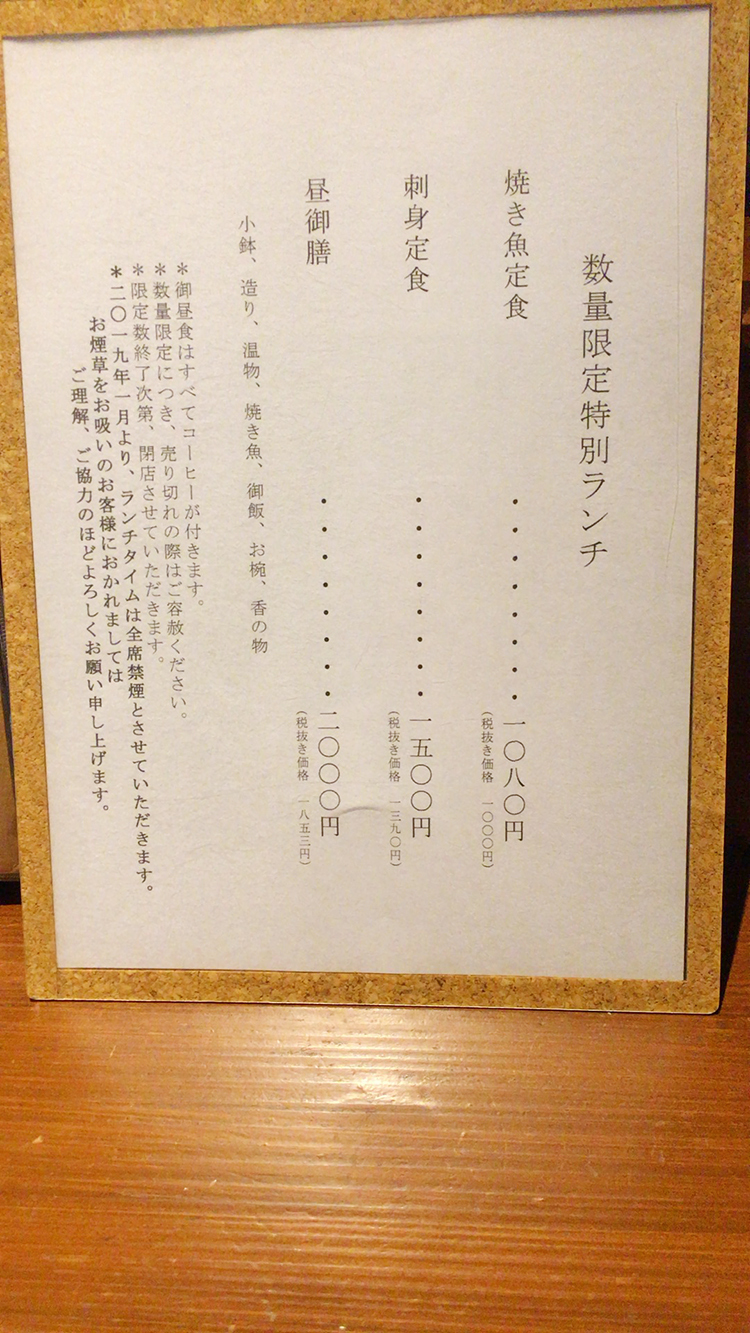 数量限定特別ランチ
焼き魚定食・・・・・・・・一〇八〇円
（税抜き価格　一〇〇〇円）
刺身定食・・・・・・・・一五〇〇円
（税抜き価格　一三九〇円）
昼御膳・・・・・・・・二〇〇〇円
（税抜き価格　一八五三円）
小鉢、造り、温物、焼き魚、御飯、お椀、香の物
＊御昼食はすべてコーヒーが付きます。
＊数量限定につき、売り切れの際はご容赦ください。
＊限定数終了次第、閉店させていただきます。
＊二〇一九年一月より、ランチタイムは全席禁煙とさせていただきます。
お煙草をお吸いのお客様におかれましては
ご理解、ご協力のほどよろしくお願い申し上げます。